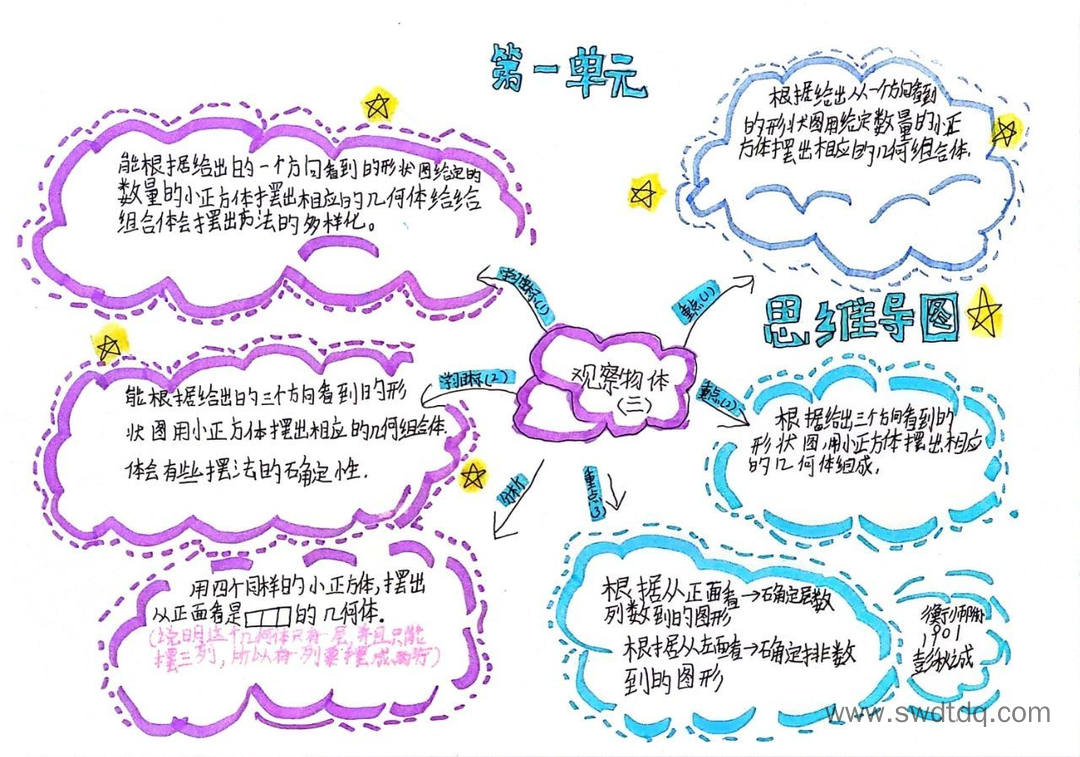 第一单元
思维导图
观察物体
(三)
学习目标(1)
能根据给出的一个方向看到的形状图给定的
数量的小正方体摆出相应的几何体给给
组合体会摆出方法的多样化。
学习目标(2)
能根据给出的三个方向看到的形
状图用小正方体摆出相应的几何组合体.
体会有些摆法的确定性.
分析
用四个同样的小正方体,摆出
从正面看是的几何体.
(说明这个几何体只有一层,并且只能
摆三列,所以有一列要摆成两行)
重点(1)
根据给出从一个方向看到
的形状图用给定数量的小正
方体摆出相应的几何组合体.
重点(2)
根据给出三个方向看到的
形状图,用小正方体摆出相应
的几何体组成.
重点3
根据从正面看→确定层数
列数到的图形
根据从左面看→确定排数
到的图形
1901
www.swdtdq.com